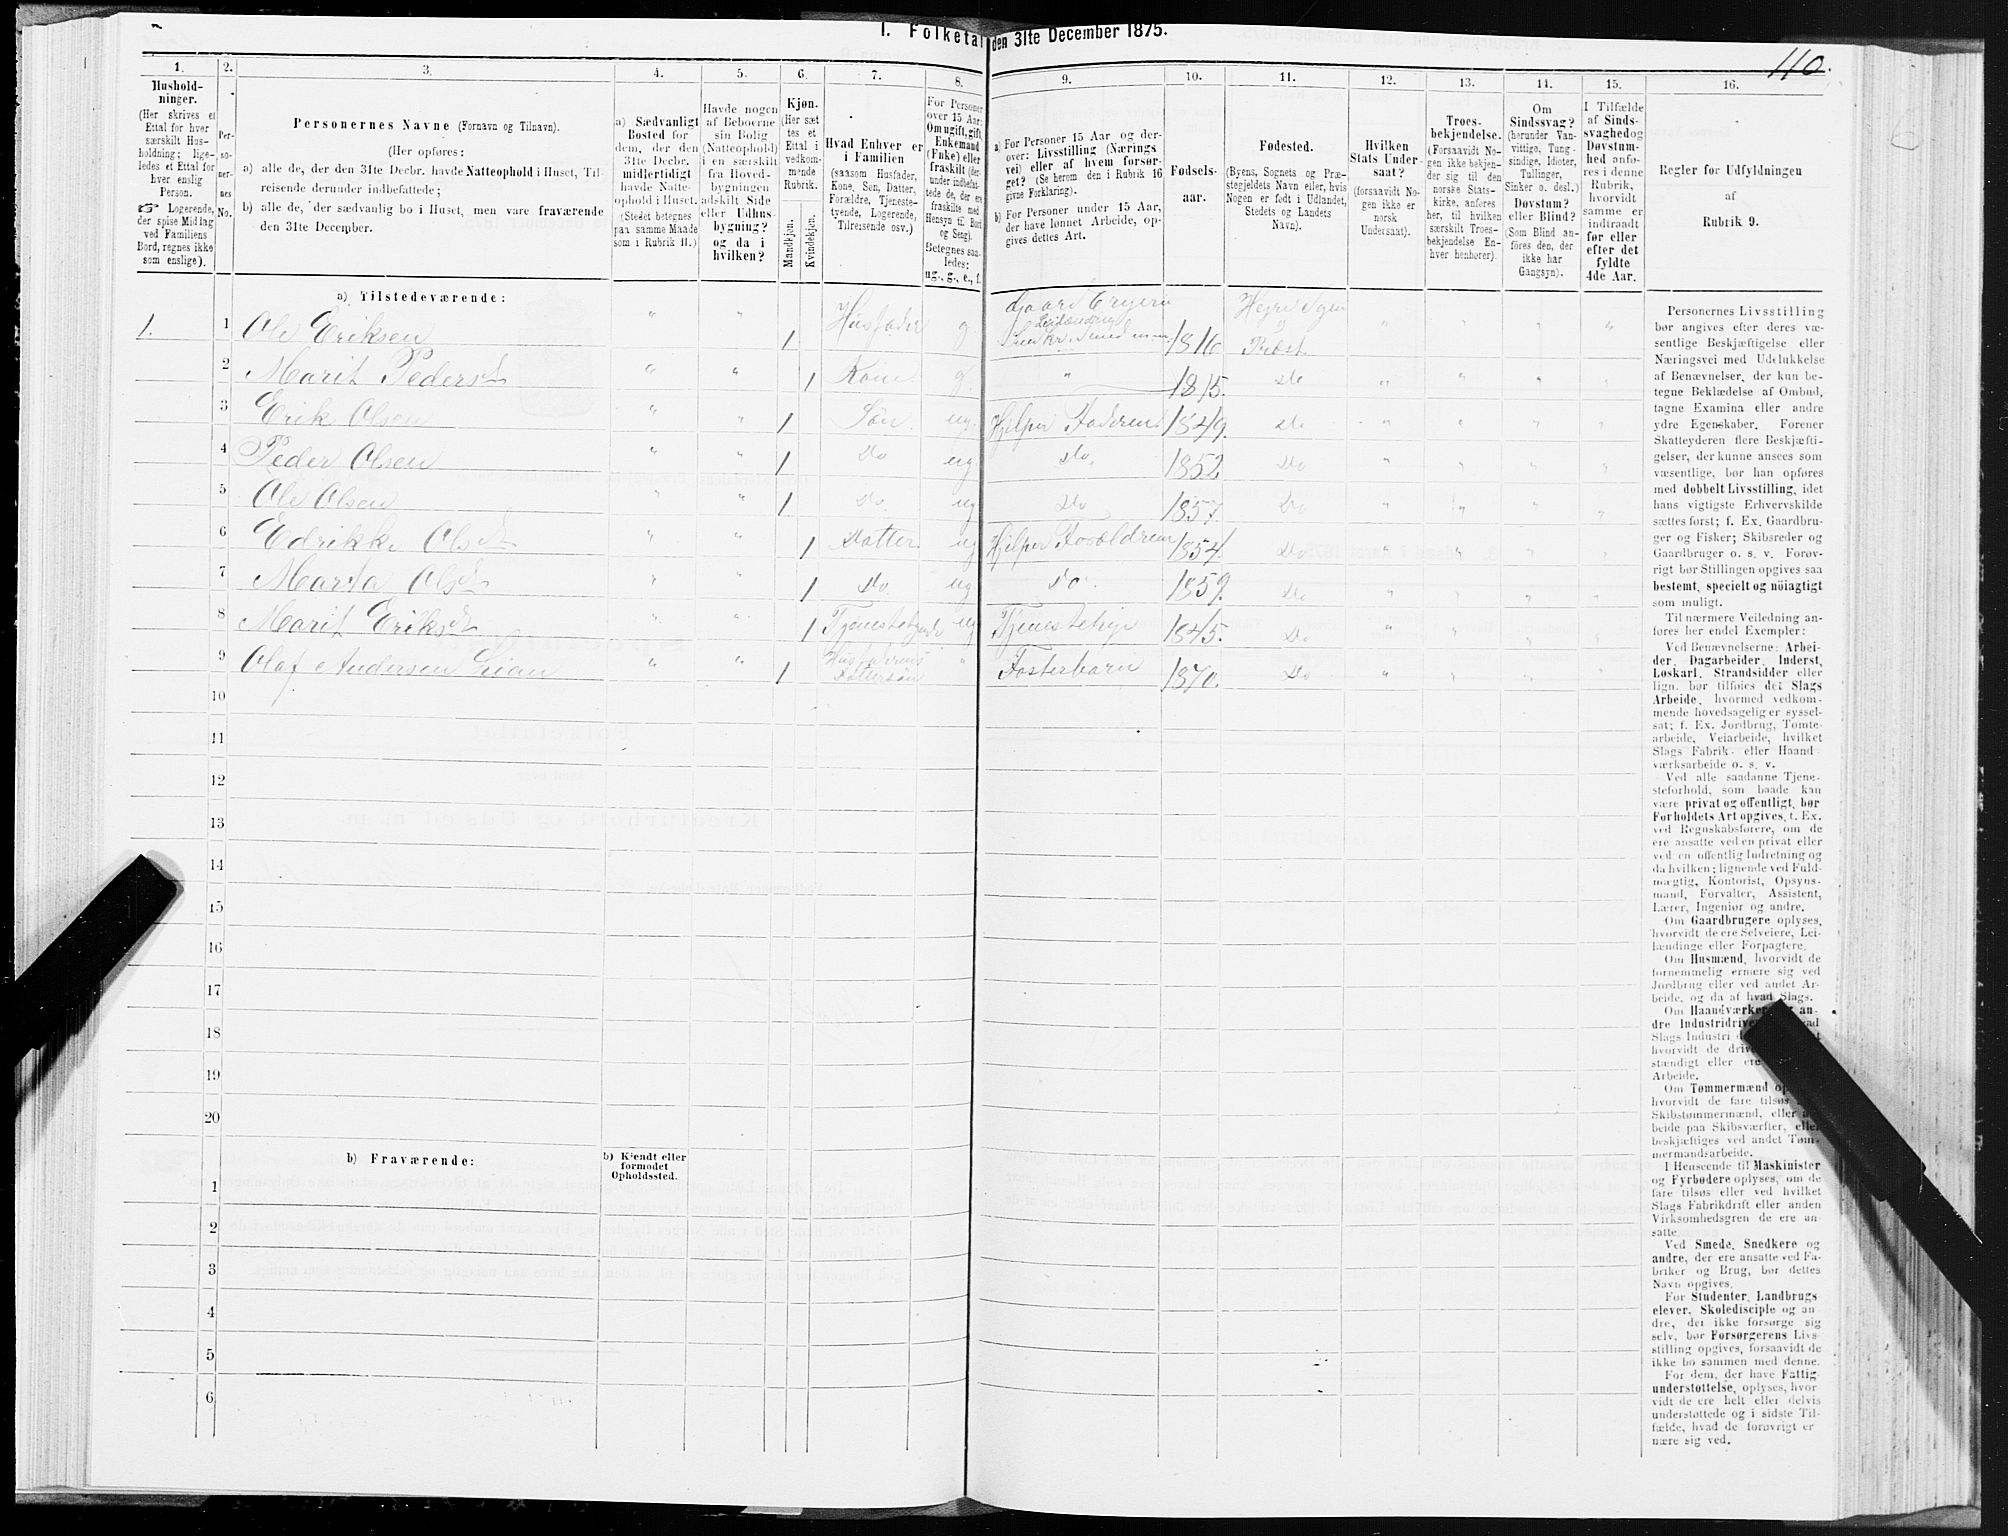 I. Folketal den 31te December 1875.
110.
1.
2.
3.
4.
5.
6.
7.
8.
9.
10.
11.
12.
13.
14.
15.
16.
Hushold-
ninger.
(Her skrives et
Ettal for hver
særskilt Hus-
holdning; lige-
ledes et Ettal for
hver enslig
Person.
☞ Logerende,
der spise Middag
ved Familiens
Bord, regnes ikke
som enslige).
Per-
so-
ner-
nes
No.
Personernes Navne (Fornavn og Tilnavn).
(Her opføres:
a) alle de, der den 31te Decbr. havde Natteophold i Huset, Til-
reisende derunder indbefattede;
b) alle de, der sædvanlig bo i Huset, men vare fraværende
den 31te December.
a) Sædvanligt
Bosted for
dem, der den
31te Decbr.
midlertidigt
havde Natte-
ophold i Huset.
(Stedet betegnes
paa samme Maade
som i Rubrik 11.)
Havde nogen
af Beboerne
sin Bolig
(Natteophold)
i en særskilt
fra Hoved-
bygningen
adskilt Side
eller Udhus-
bygning?
og da i
hvilken?
Kjøn.
(Her sæt
tes et
Ettal i
vedkom-
mende
Rubrik.
Mandkjøn.
Kvindekjøn.
Hvad Enhver er
i Familien
(saasom Husfader,
Kone, Søn, Datter,
Forældre, Tjeneste-
tyende, Logerende,
Tilreisende osv.)
For Personer
over 15 Aar:
Om ugift, gift,
Enkemand
(Enke) eller
fraskilt (der-
under indbefat-
tede de, der ere
fraskilte med
Hensyn til Bord
og Seng).
Betegnes saa-
ledes:
ug., g., e., f.
a) For Personer 15 Aar og der-
over: Livsstilling (Nærings
vei) eller af hvem forsør-
get? (Se herom den i Rubrik 16
givne Forklaring).
b) For Personer under 15 Aar,
der have lønnet Arbeide, op-
gives dettes Art.
Fødsels-
aar.
Fødested.
(Byens, Sognets og Præ-
stegjeldets Navn eller, hvis
Nogen er født i Udlandet,
Stedets og Landets
Navn).
Hvilken
Stats Under-
saat?
(forsaavidt No-
gen ikke er
norsk
Undersaat).
Troes-
bekjendelse.
(Forsaavidt No-
gen ikke bekjen-
der sig til den
norske Stats-
kirke, anføres
her, til hvilken
særskilt Troes-
bekjendelse En-
hver henhører).
Om
Sindssvag?
(herunder Van-
vittige, Tung-
sindige, Idioter,
Tullinger,
Sinker o. desl.)
Døvstum?
eller Blind?
(Som Blind an-
føres den, der
ikke har
Gangsyn).
I Tilfælde
af Sinds-
svaghed og
Døvstum-
hed anfø-
res i denne
Rubrik,
hvorvidt
samme er
indtraadt
før eller
efter det
fyldte
4de Aar.
Regler for Udfyldningen
af
Rubrik 9.
a) Tilstedeværende:
1. 1 Ole Eriksen " " 1 Husfader g Gaard Leilænding 1816 Præst " " " "
2 Marit Pedersd " " 1 Kone g " 1815. Do " " " "
3 Erik Olsen " " 1 Søn. ug. Hjelper Faderen 1849. Do " " " "
4 Peder Olsen " " 1 Do ug Do. 1852 Do " " " "
5 Ole Olsen " " 1 Do. ug Do 1857. Do " " " "
6 Edrikke Olsd " " 1 Datter ug Hjelper Foræeldrene 1854. Do " " " "
7 Marta Olsd " " 1 Do. ug Do. 1859. Do " " " "
8 Marit Eriksd " " 1 Tjenestepige ug Tjenestepige 1845. Do " " " "
9 Olaf Andersen Lian " " 1 Husfaderens " Fosterbarn 1870. Do " " " "
10
11
12
13
14
15
16
17
18
19
20
b) Fraværende:
b) Kjendt eller
formodet
Opholdssted.
1
2
3
4
5
6
Personernes Livsstilling
bør angives efter deres væ-
sentlige Beskjæftigelse eller
Næringsvei med Udelukkelse
af Benævnelser, der kun be-
tegne Beklædelse af Ombud,
tagne Examina eller andre
ydre Egenskaber. Forener
Skatteyderen flere Beskjæfti-
gelser, der kunne ansees som
væsentlige, bør han opføres
med dobbelt Livsstilling, idet
hans vigtigste Erhvervskilde
sættes først; f. Ex. Gaardbru-
ger og Fisker; Skibsreder og
Gaardbruger o. s. v. Forøv-
rigt bør Stillingen opgives saa
bestemt, specielt og nöiagtigt
som muligt.
Til nærmere Veiledning an-
føres her endel Exempler:
Ved Benævnelserne: Arbei-
der, Dagarbeider, Inderst,
Løskarl, Strandsidder eller
lign. bør tilføies det Slags
Arbeide, hvormed vedkom-
mende hovedsagelig er syssel-
sat; f. Ex. Jordbrug, Tomte-
arbeide, Veiarbeide, hvilket
Slags Fabrik- eller Haand-
værksarbeide o. s. v.
Ved alle saadanne Tjene-
steforhold, som baade kan
være privat og offentligt, bør
Forholdets Art opgives, f. Ex.
ved Regnskabsførere, om de
ere ansatte ved en privat eller
ved en offentlig Indretning og
da hvilken; lignende ved Fuld-
mægtig, Kontorist, Opsyns-
mand, Forvalter, Assistent,
Lærer, Ingeniør og andre.
Om Gaardbrugere oplyses,
hvorvidt de ere Selveiere, Lei-
lændinge eller Forpagtere.
Om Husmænd, hvorvidt de
fornemmelig ernære sig ved
Jordbrug eller ved andet Ar-
beide, og da af hvad Slags.
Om Haandværkere og an-
dre Industridriv
Slags Industri
hvorvidt de
stændigt eller ere
Arbeide.
Om Tømmermænd
hvorvidt de fare tilsøs
Skibstømmermænd, eller
beide paa Skibsværfter, eller
beskjæftiges ved andet Tøm-
mermandsarbeide.
I Henseende til Maskinister
og Fyrbødere oplyses, om de
fare tilsøs eller ved hvilket
Slags Fabrikdrift eller anden
Virksomhedsgren de ere an-
satte.
Ved Smede, Snedkere og
andre, der ere ansatte ved Fa-
briker og Brug, bør dettes
Navn opgives.
For Studenter, Landbrugs-
elever, Skoledisciple og an-
dre, der ikke forsørge sig
selv, bør Forsørgerens Livs-
stilling opgives, forsaavidt de
ikke bo sammen med denne.
For dem, der have Fattig-
understøttelse, oplyses, hvor-
vidt de ere helt eller delvis
understøttede og i sidste Til-
fælde, hvad de forøvrigt er-
nære sig ved.